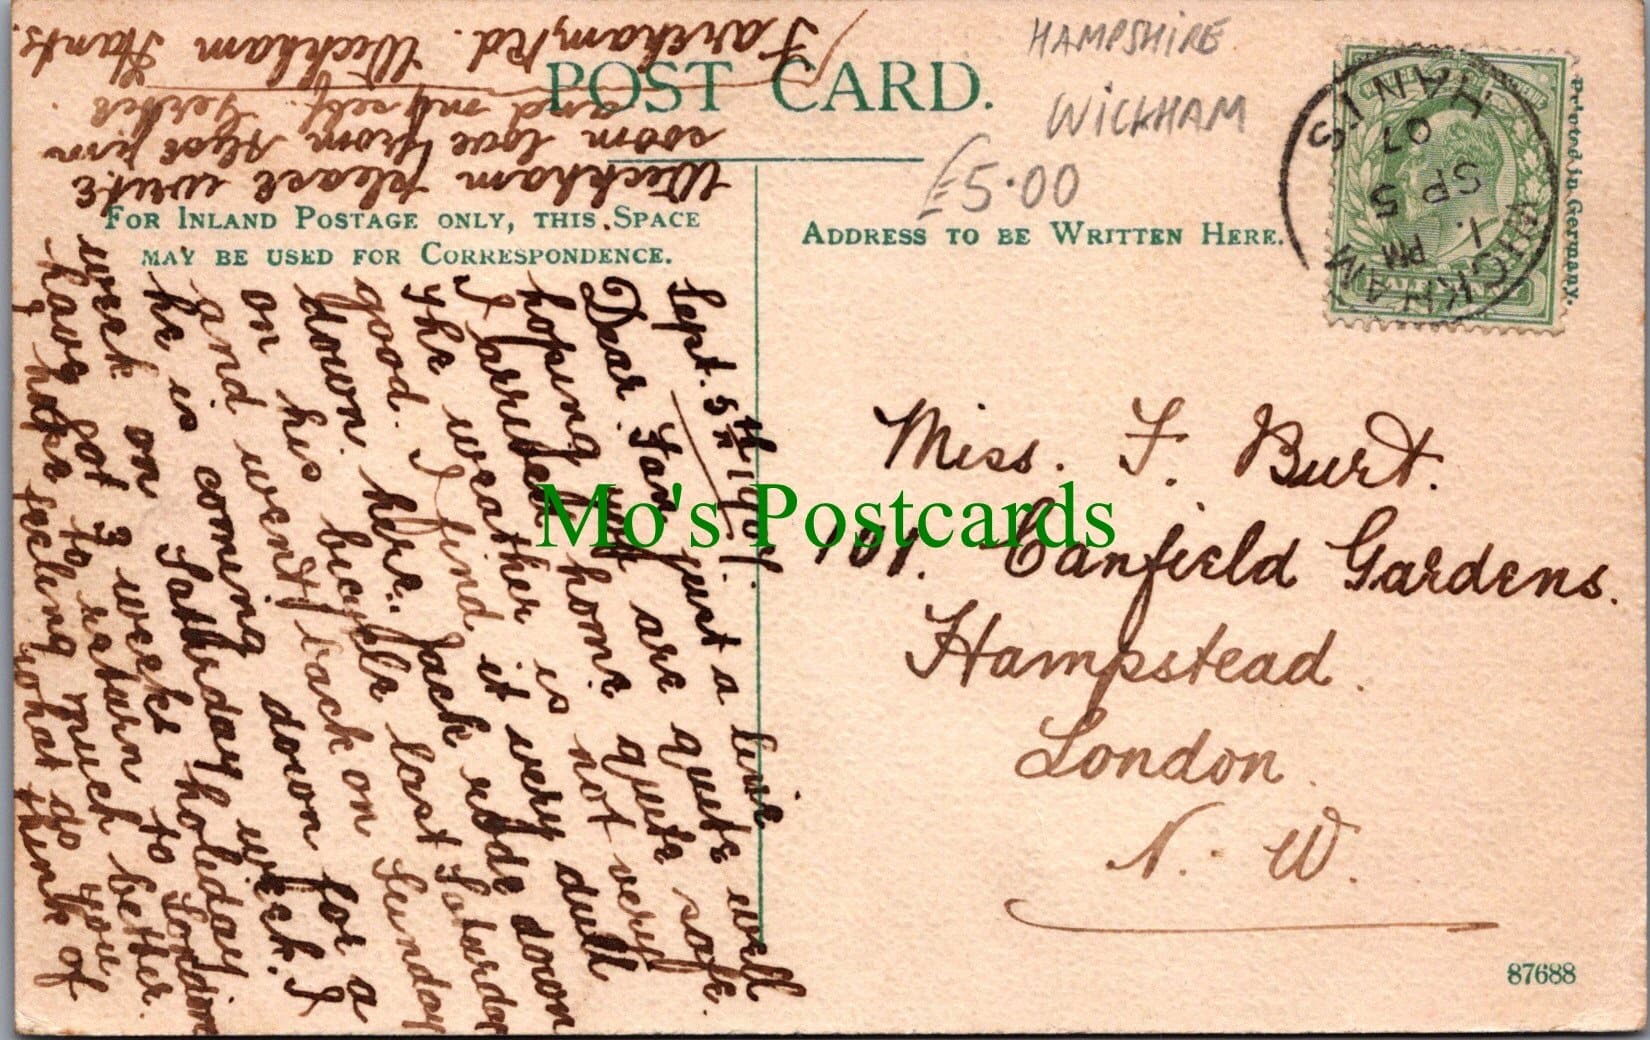 POST CARD.
FOR INLAND POSTAGE ONLY, THIS SPACE
MAY BE USED FOR CORRESPONDENCE.
ADDRESS TO BE WRITTEN HERE.
HAMPSHIRE
WICKHAM
£5.00
WICKHAM
HANTS
1. PM
SP 5
07
Printed in Germany.
Miss. F. Burt.
101. Canfield Gardens.
Hampstead.
London
N. W.
87688
Mo's Postcards
Sept. 5th 1907.
Dear Fan just a line
hoping you are quite well
I arrived home quite safe.
the weather is not very
good. I find it very dull
down here. Jack rode down
on his bicycle last Saturday
and went back on Sunday
he is coming down for a
week on Saturday holiday
have got 2 weeks to
to return to London
I hope feeling much better
what do you
think of
Wickham please write
soon love from
and myself. Gertie
Fareham Rd. Wickham Hants.